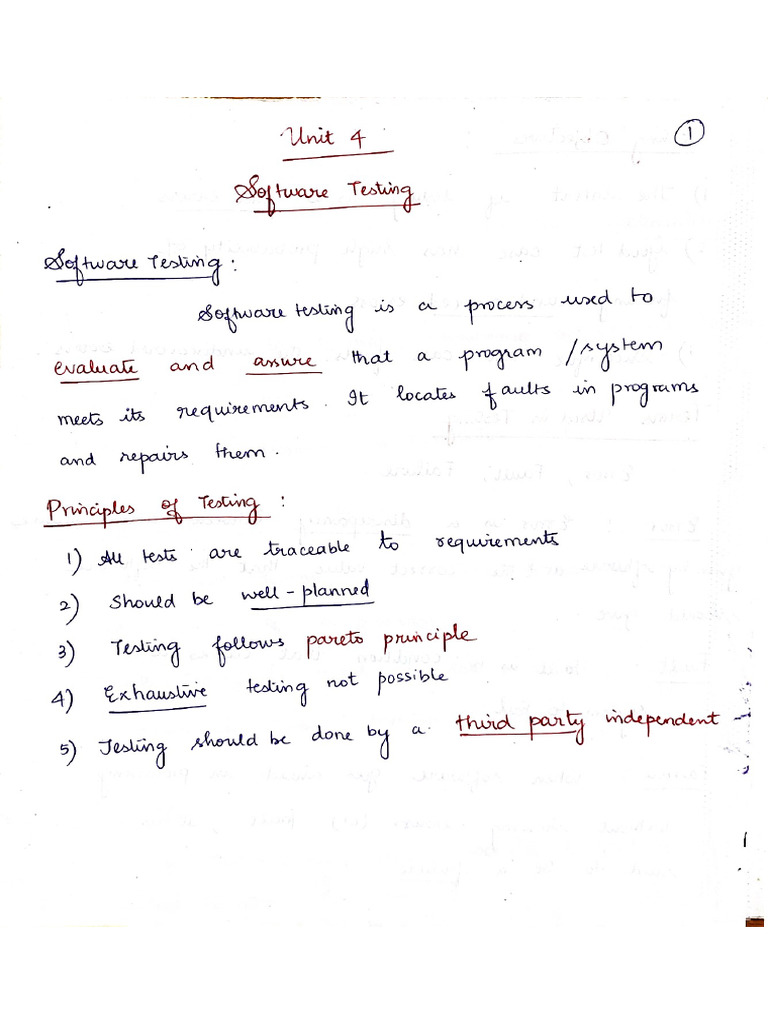 Unit 4
1
Software Testing
Software Testing :
Software testing is a process used to
evaluate and assure that a program / system
meets its requirements. It locates faults in programs
and repairs them.
Principles of Testing :
1) All tests are traceable to requirements
2) Should be well-planned
3) Testing follows pareto principle
4) Exhaustive testing not possible
5) Testing should be done by a third party independent